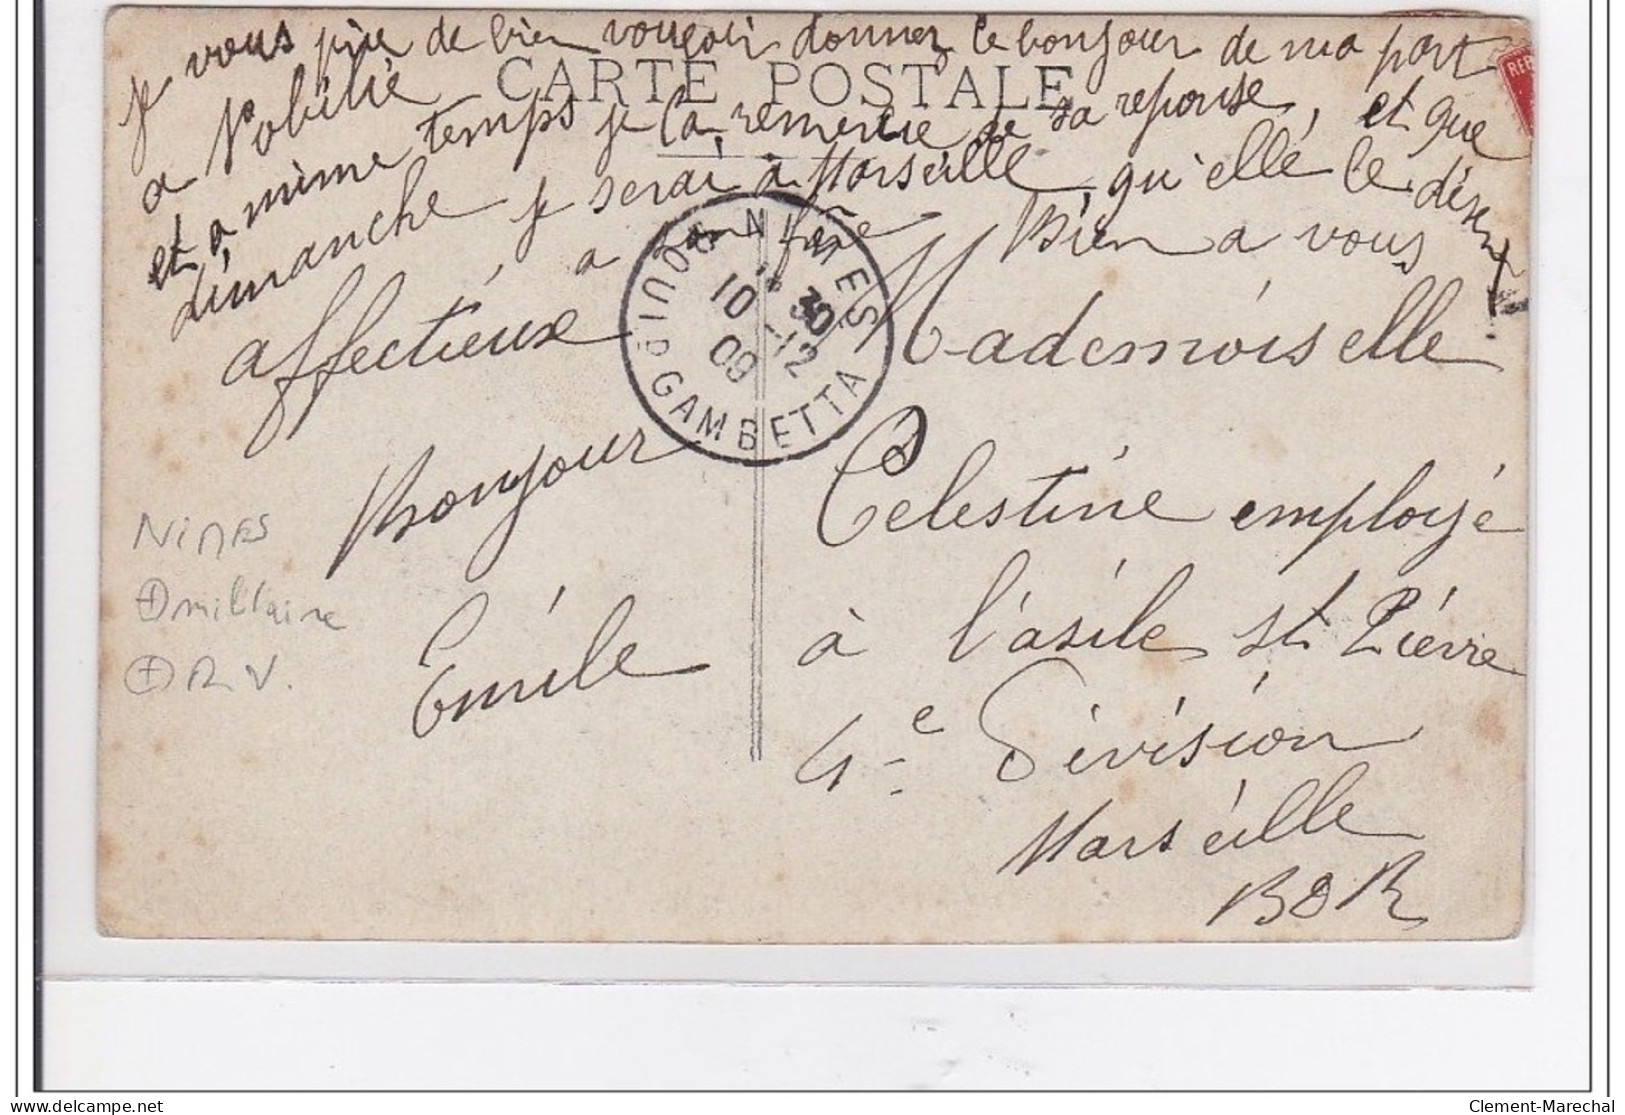 je vous prie de bien vouloir donner le bonjour de ma part
CARTE POSTALE
a
et a même temps je la remercie de sa reponse, et que
dimanche je serai à Marseille, qu'elle le
a Bien a vous
affectieux
Bonjour
Emile
Mademoiselle
Celestine employé
à l'asile st Pierre
4e Division
Marseille
B D R
NIMES
GAMBETTA
30
10 -12
09
Nimes
militaire
R V.
REP
Clement-Marechal